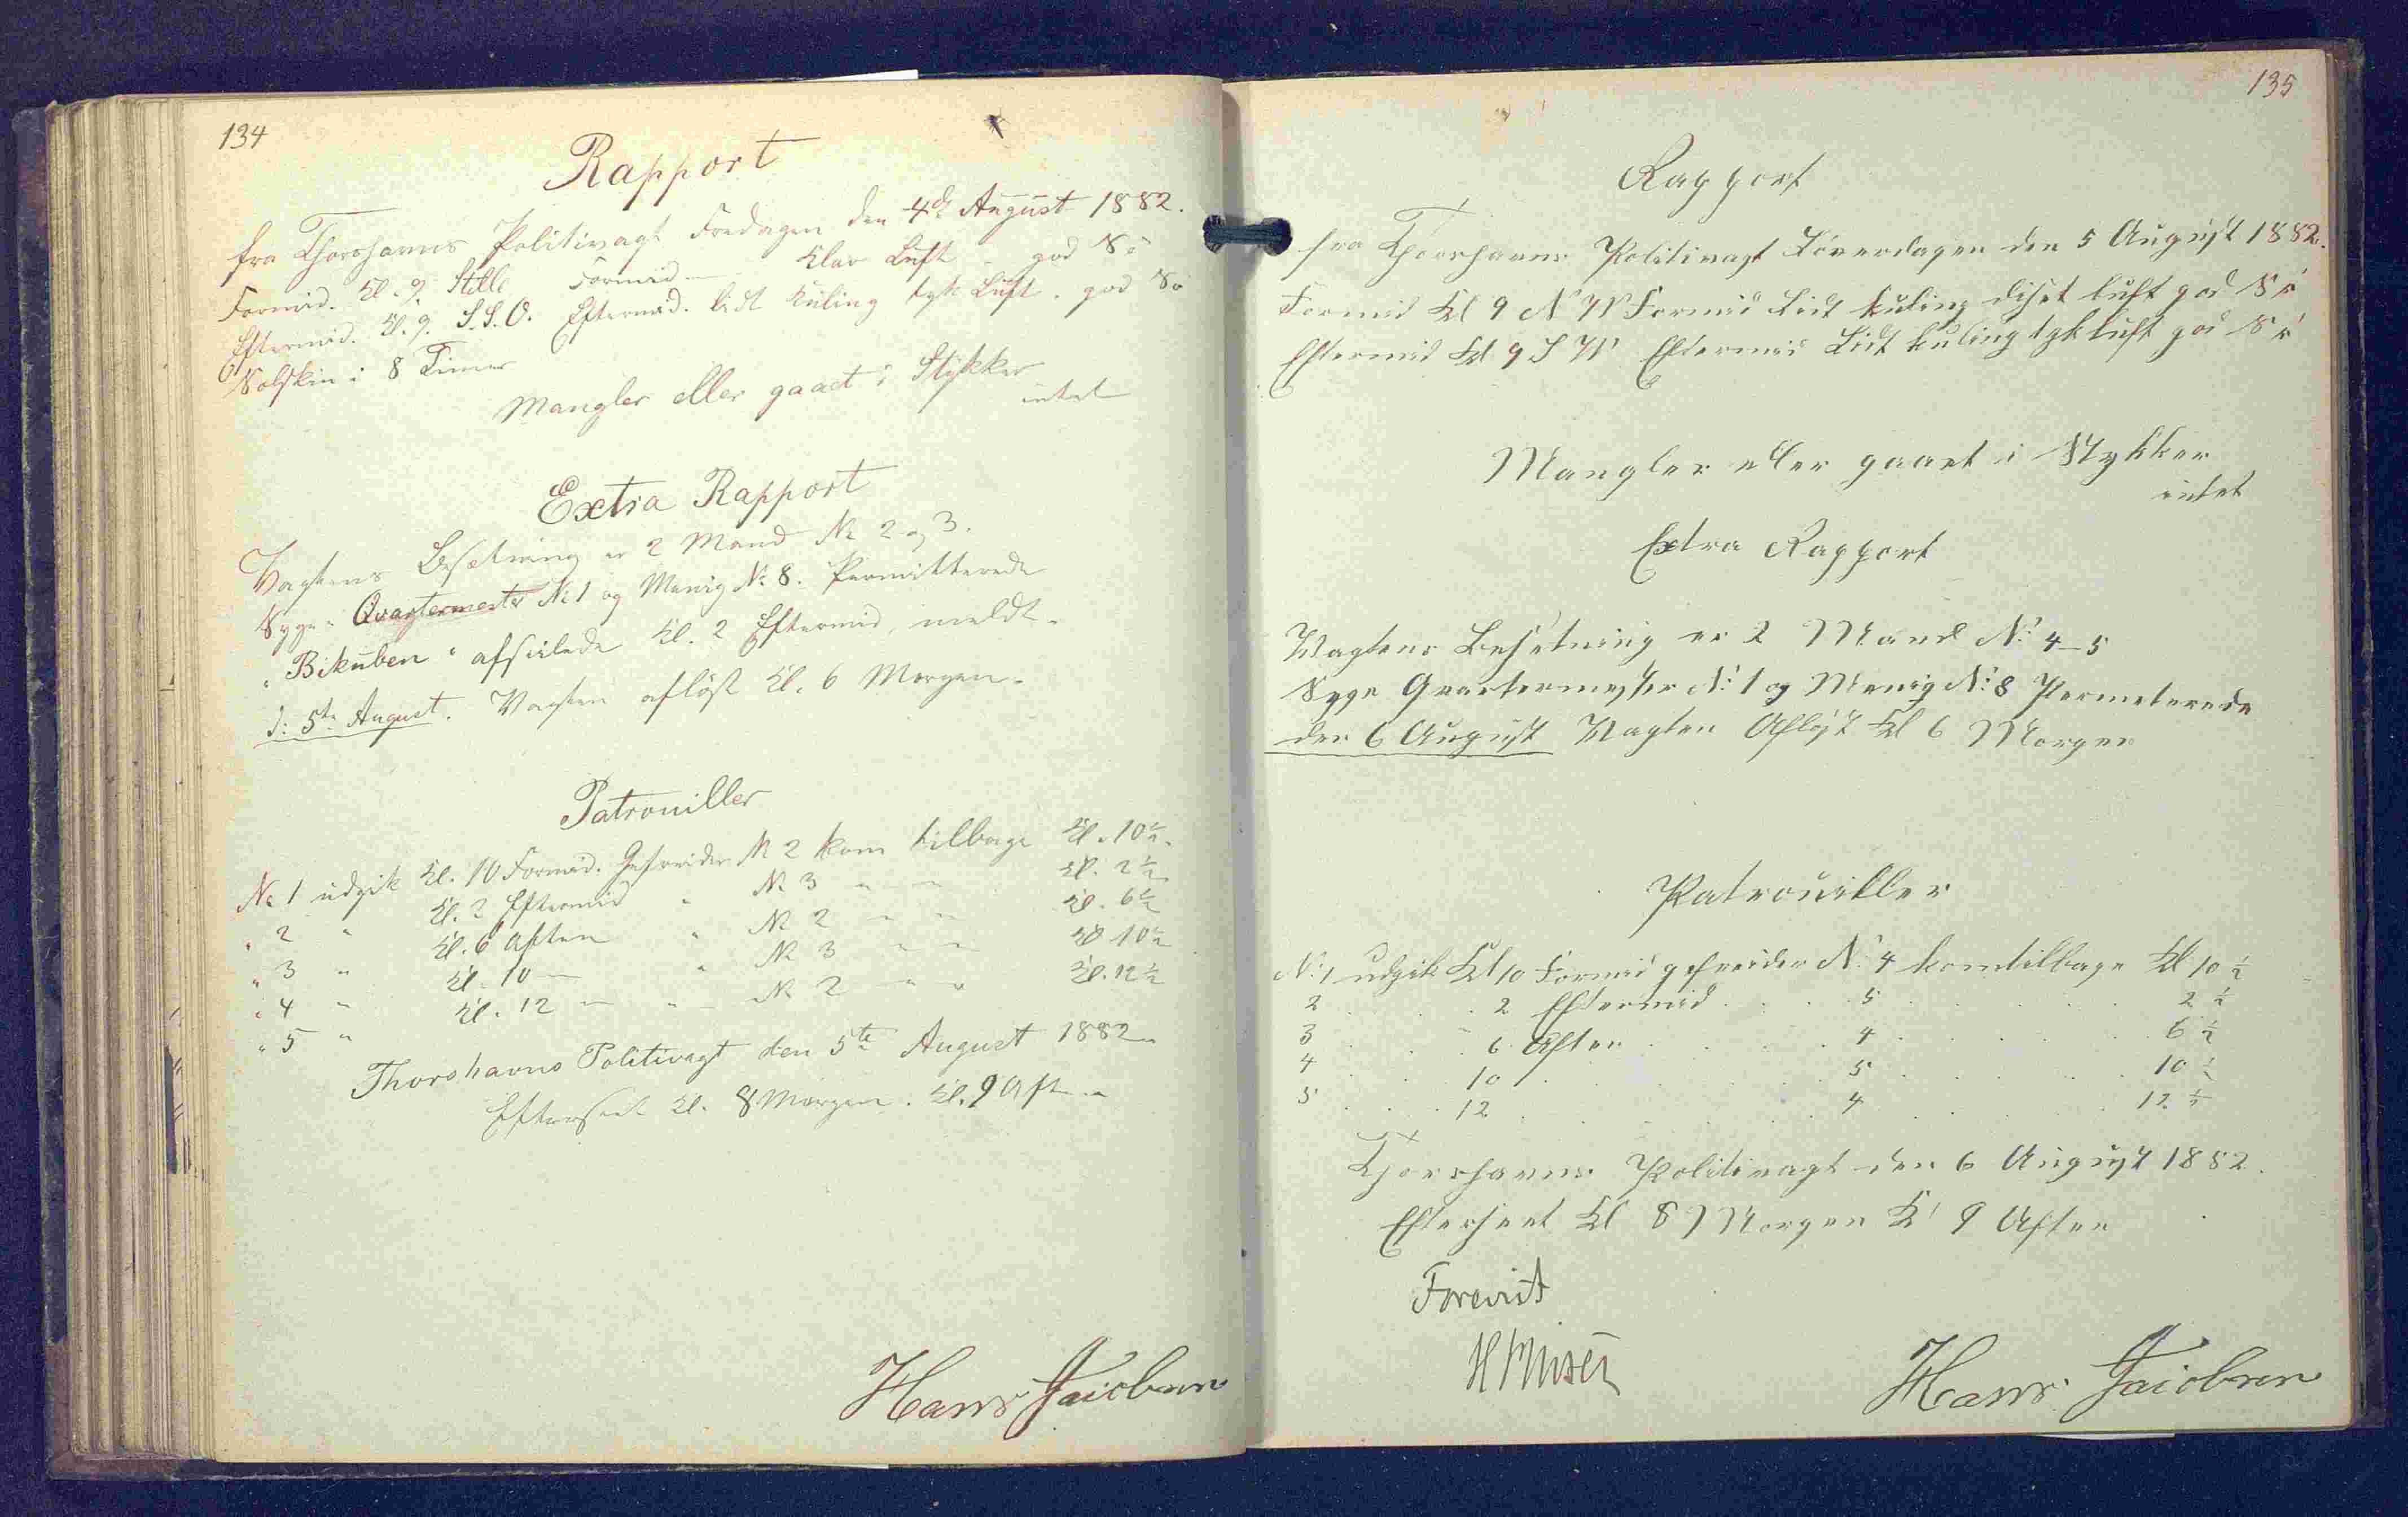 134
Rapport
fra Thorshavns Politivagt Fredagen den 4de August 1882.
Formid. Kl. 9. Stille Formid — Klar Luft - god Sö
Eftermid. Kl. 9. S.S.O. Eftermid. lidt Kuling tyk Luft. god Sö
Solskin i 8 Timer
Mangler eller gaaet i Stykker
intet
Extra Rapport
Vagtens Besetning er 2 Mand No 2 og 3.
Syge: Qvartermester No 1 og Menig No 8. Permitterede
"Bikuben" afseilede Kl. 2 Eftermid, meldt.
d: 5te August. Vagten aflöst Kl. 6 Morgen.
Patrouiller
No 1 udgik Kl. 10 Formid. Gefreider No 2 kom tilbage Kl. 10½.
" 2 " Kl. 2 Eftermid " No 3 " " Kl. 2½
" 3 " Kl. 6 Aften " No 2 " " Kl. 6½
" 4 " Kl. 10 — " No 3 " " Kl. 10½
" 5 " Kl. 12 — " No 2 " " Kl. 12½
Thorshavns Politivagt den 5te August 1882
Efterseet Kl. 8 Morgen. Kl. 9 Aften
Hans Jacobsen
135
Rapport
fra Thorshavns Politivagt Löverdagen den 5 August 1882.
Formid Kl 9 N W Formid Lidt kuling diset luft god Sö
Eftermid Kl 9 S W Eftermid Lidt kuling tyk luft god Sö
Mangler eller gaaet i Stykker
intet
Extra Rapport
Vagtens Besetning er 2 Mand No 4–5
Syge Qvartermester No 1 og Menig No 8 Permeterede
den 6 August Vagten Aflöst Kl 6 Morgen
Patrouiller
No 1 udgik Kl 10 Formid gefreider No 4 kom tilbage Kl 10½
2 . . 2 Eftermid . . 5 . . 2½
3 . . 6 Aften . . 4 . . 6½
4 . . 10 . . 5 . . 10½
5 . . 12 . . 4 . . 12½
Thorshavns Politivagt den 6 August 1882.
Efterseet Kl 8 Morgen Kl 9 Aften
Forevist
Hans Jacobsen